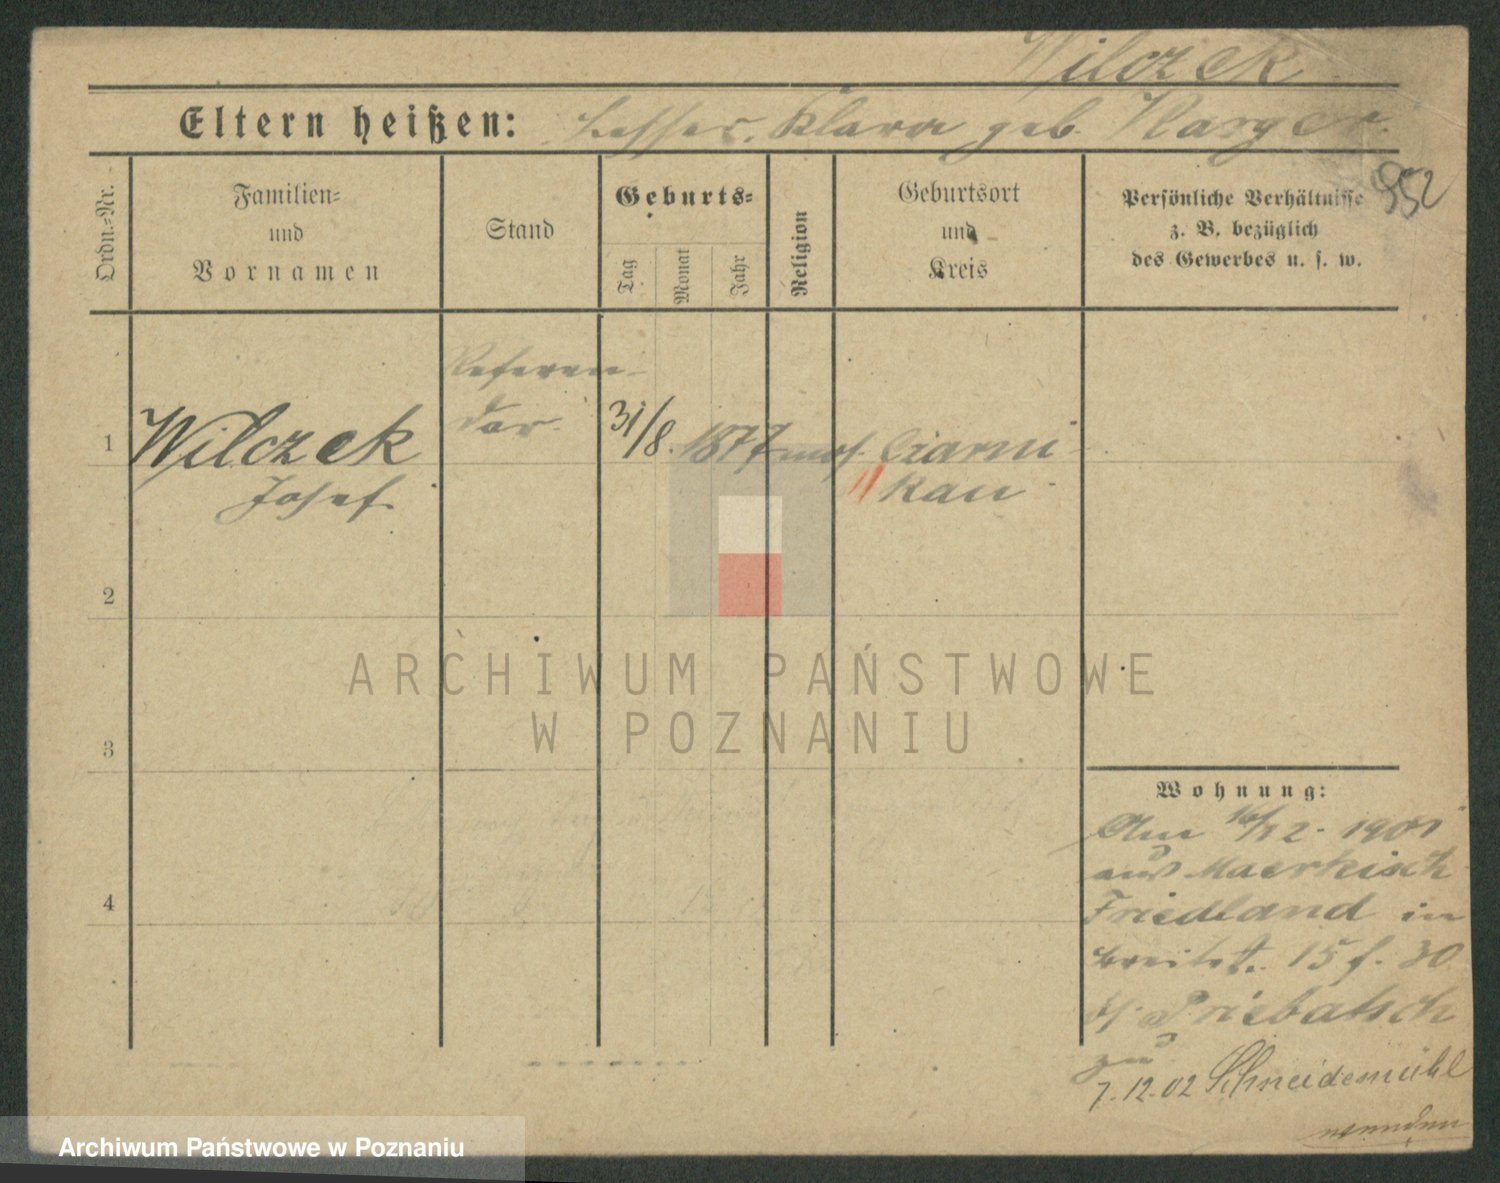 Wilczek
Eltern heißen: Lesser, Klara geb. Karger.
952
Ordn.-Nr.
Familien-
und
Vornamen
Stand
Geburts-
Tag
Monat
Jahr
Religion
Geburtsort
und
Kreis
Persönliche Verhältnisse
z. B. bezüglich
des Gewerbes u. s. w.
1
Wilczek
Josef
Referen-
dar.
31/8. 1877
mos.
Czarni-
kau
2
3
4
ARCHIWUM PAŃSTWOWE
W POZNANIU
Wohnung:
Am 16/12. 1901
aus Maerkisch
Friedland in
Breitest. 15 f. 30
b/ Priebatsch
zu
7.12.02 Schneidemühl
Archiwum Państwowe w Poznaniu